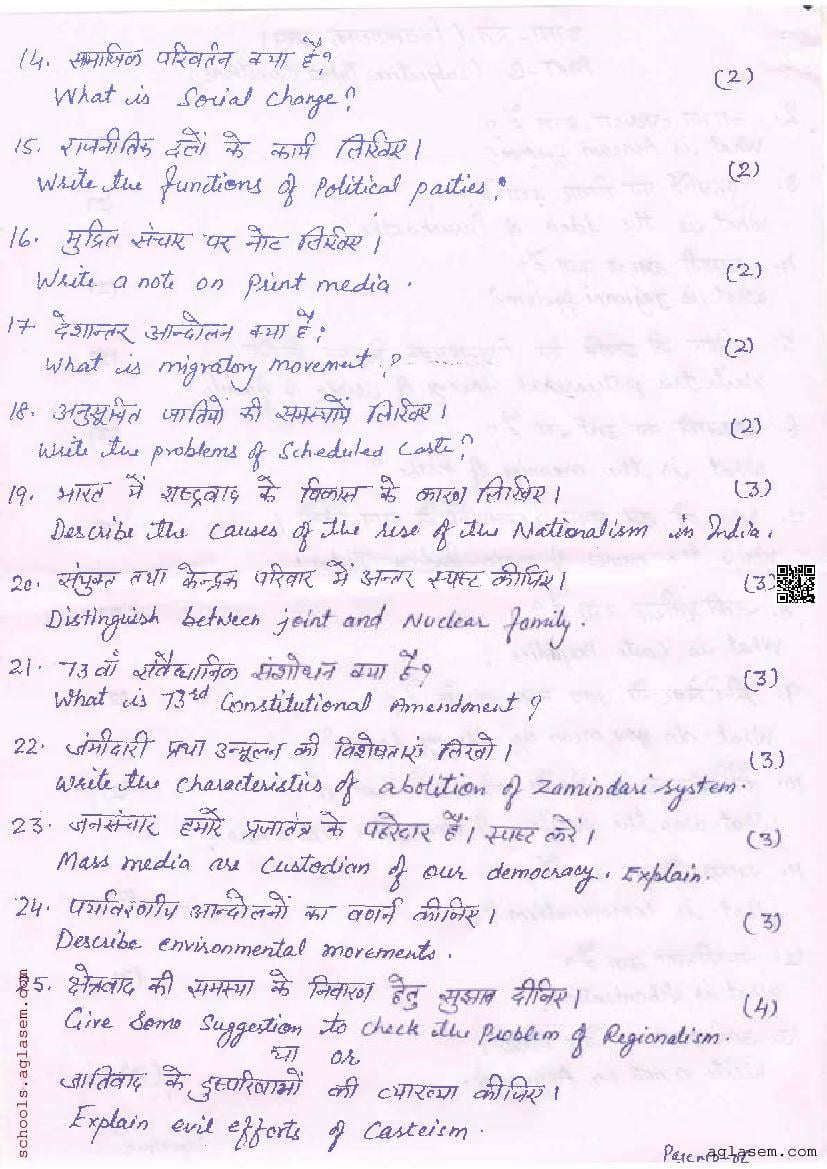 14. समाजिक परिवर्तन क्या है? (2)
What is Social Change?
15. राजनीतिक दलों के कार्य लिखिए। (2)
Write the functions of Political parties?
16. मुद्रित संचार पर नोट लिखिए। (2)
Write a note on Print media.
17 देशान्तर आन्दोलन क्या है? (2)
What is migratory movement?
18. अनुसूचित जातियो की समस्यायें लिखिए। (2)
Write the problems of Scheduled Caste?
19. भारत में राष्ट्रवाद के विकास के कारण लिखिए। (3)
Describe the causes of the rise of the Nationalism in India.
20. संयुक्त तथा केन्द्रक परिवार में अन्तर स्पष्ट कीजिए। (3)
Distinguish between joint and Nuclear family.
21. 73वाँ संवैधानिक संशोधन क्या है? (3)
What is 73rd Constitutional Amendment?
22. जंमीदारी प्रथा उन्मूलन की विशेषताएं लिखो। (3)
Write the characteristics of abolition of Zamindari-system.
23. जनसंचार हमारे प्रजातंत्र के पहरेदार हैं। स्पष्ट करें। (3)
Mass media are Custodian of our democracy. Explain.
24. पर्यावरणीय आन्दोलनों का वर्णन कीजिए। (3)
Describe environmental movements.
25. क्षेत्रवाद की समस्या के निवारण हेतु सुझाव दीजिए। (4)
Give Some Suggestion to check the Problem of Regionalism.
या or
जातिवाद के दुष्परिणामों की व्याख्या कीजिए।
Explain evil efforts of Casteism.
schools.aglasem.com
aglasem.com